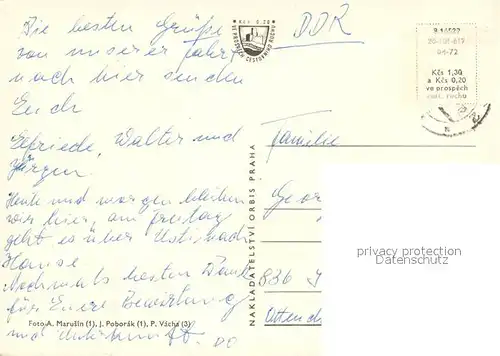 Die besten Grüße
von unserer Fahrt
nach hier senden
Euch
Elfriede, Walter und
Jürgen.
Heute und morgen bleiben
wir hier, am Freitag
geht es über Usti nach
Hause
Nochmals besten Dank
für Euere Bewirtung
und Unterkunft. DO
Foto A. Marušin (1), J. Poborák (1), P. Vácha (3)
NAKLADATELSTVÍ ORBIS PRAHA
Kčs 0,20
VE PROSPĚCH CESTOVNÍHO RUCHU
DDR
04-72
Kčs 1,30
a Kčs 0,20
ve prospěch
cest. ruchu
Familie
Geor
836
Otten
privacy protection
www.ansichtskarten-center.de